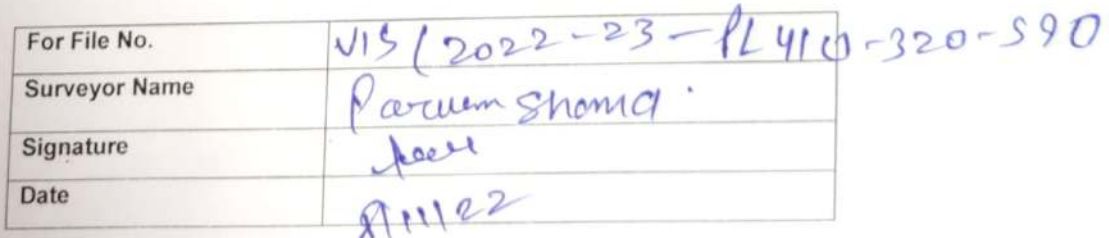 For File No. VIS (2022-23-PL410-320-590
Surveyor Name Parveen Sharma
Signature
Date 8/11/22